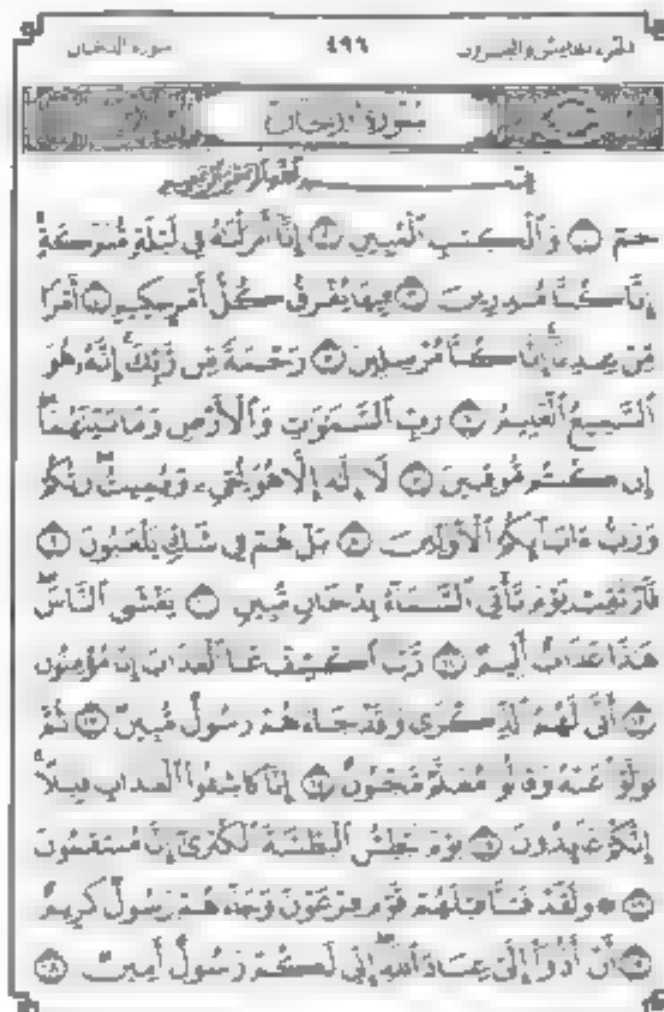 الجزء الخامس والعشرون ٤٩٦ سورة الدخان
سُورَةُ الدُّخَانِ
بِسْمِ اللَّهِ الرَّحْمَٰنِ الرَّحِيمِ
حمٓ ١ وَٱلْكِتَٰبِ ٱلْمُبِينِ ٢ إِنَّآ أَنزَلْنَٰهُ فِى لَيْلَةٍ مُّبَٰرَكَةٍ
إِنَّا كُنَّا مُنذِرِينَ ٣ فِيهَا يُفْرَقُ كُلُّ أَمْرٍ حَكِيمٍ ٤ أَمْرًا
مِّنْ عِندِنَآ إِنَّا كُنَّا مُرْسِلِينَ ٥ رَحْمَةً مِّن رَّبِّكَ إِنَّهُۥ هُوَ
ٱلسَّمِيعُ ٱلْعَلِيمُ ٦ رَبِّ ٱلسَّمَٰوَٰتِ وَٱلْأَرْضِ وَمَا بَيْنَهُمَآ
إِن كُنتُم مُّوقِنِينَ ٧ لَآ إِلَٰهَ إِلَّا هُوَ يُحْىِۦ وَيُمِيتُ رَبُّكُمْ
وَرَبُّ ءَابَآئِكُمُ ٱلْأَوَّلِينَ ٨ بَلْ هُمْ فِى شَكٍّ يَلْعَبُونَ ٩
فَٱرْتَقِبْ يَوْمَ تَأْتِى ٱلسَّمَآءُ بِدُخَانٍ مُّبِينٍ ١٠ يَغْشَى ٱلنَّاسَ
هَٰذَا عَذَابٌ أَلِيمٌ ١١ رَّبَّنَا ٱكْشِفْ عَنَّا ٱلْعَذَابَ إِنَّا مُؤْمِنُونَ
١٢ أَنَّىٰ لَهُمُ ٱلذِّكْرَىٰ وَقَدْ جَآءَهُمْ رَسُولٌ مُّبِينٌ ١٣ ثُمَّ
تَوَلَّوْا۟ عَنْهُ وَقَالُوا۟ مُعَلَّمٌ مَّجْنُونٌ ١٤ إِنَّا كَاشِفُوا۟ ٱلْعَذَابِ قَلِيلًا
إِنَّكُمْ عَآئِدُونَ ١٥ يَوْمَ نَبْطِشُ ٱلْبَطْشَةَ ٱلْكُبْرَىٰٓ إِنَّا مُنتَقِمُونَ
١٦ ۞ وَلَقَدْ فَتَنَّا قَبْلَهُمْ قَوْمَ فِرْعَوْنَ وَجَآءَهُمْ رَسُولٌ كَرِيمٌ
١٧ أَنْ أَدُّوٓا۟ إِلَىَّ عِبَادَ ٱللَّهِ إِنِّى لَكُمْ رَسُولٌ أَمِينٌ ١٨